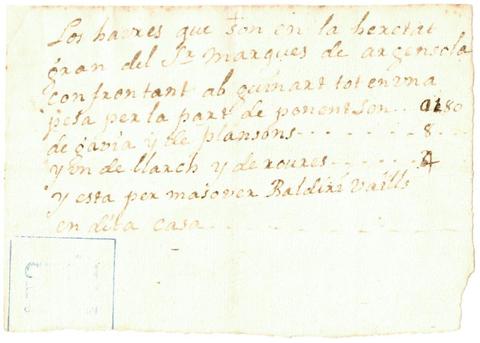 Los haures que son en la heretat
gran del Sr marques de argensola
confrontant ab guinart tot en una
pesa per la part de ponent son.. 1180
de gavia y de plansons....... 8
y son de llarch y de roures.......
y esta per masover Baldiri Vaills
en dita casa